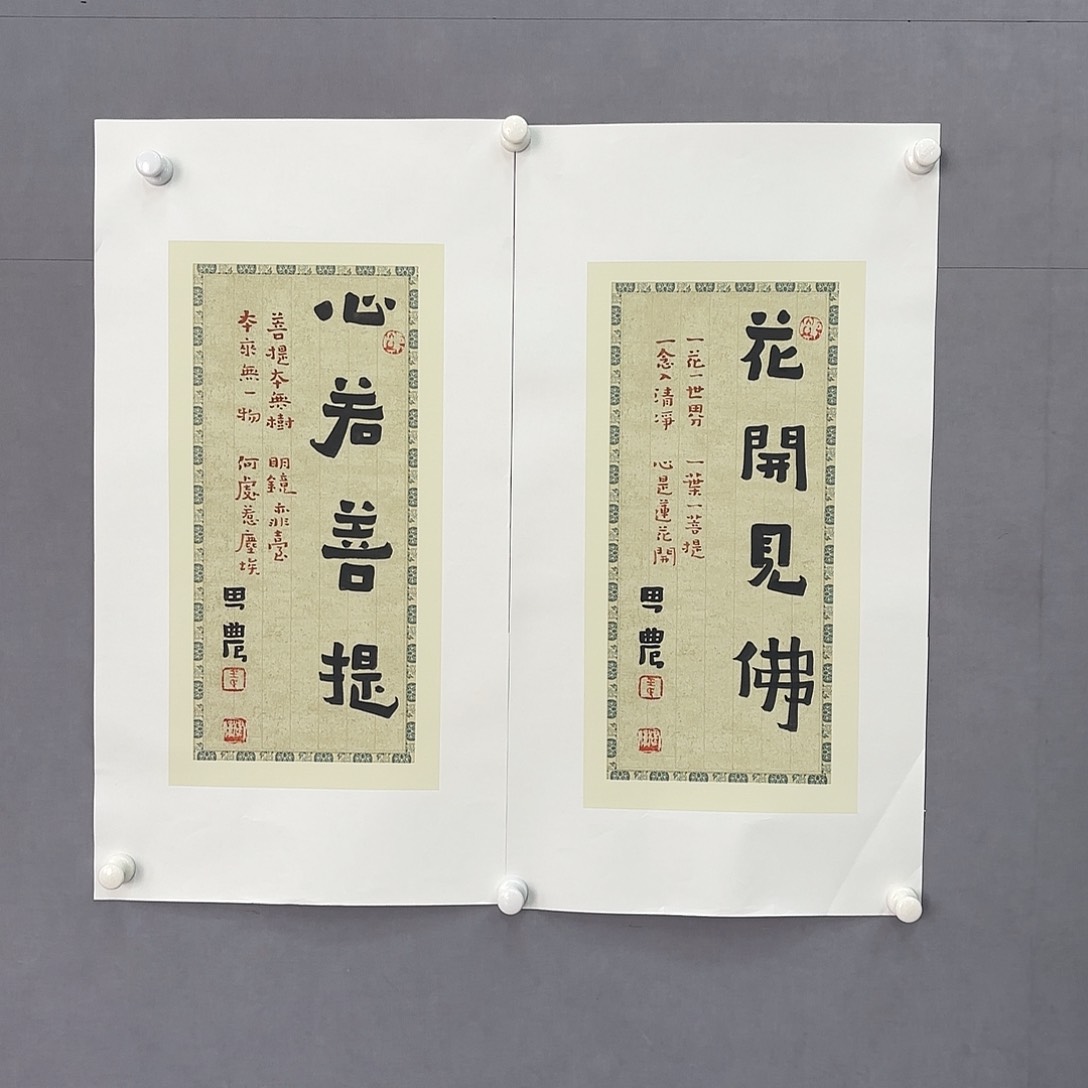 花開見佛
一花一世界 一葉一菩提
一念入清淨 心是蓮花開
農
心若菩提
菩提本無樹 明鏡亦非臺
本來無一物 何處惹塵埃
農